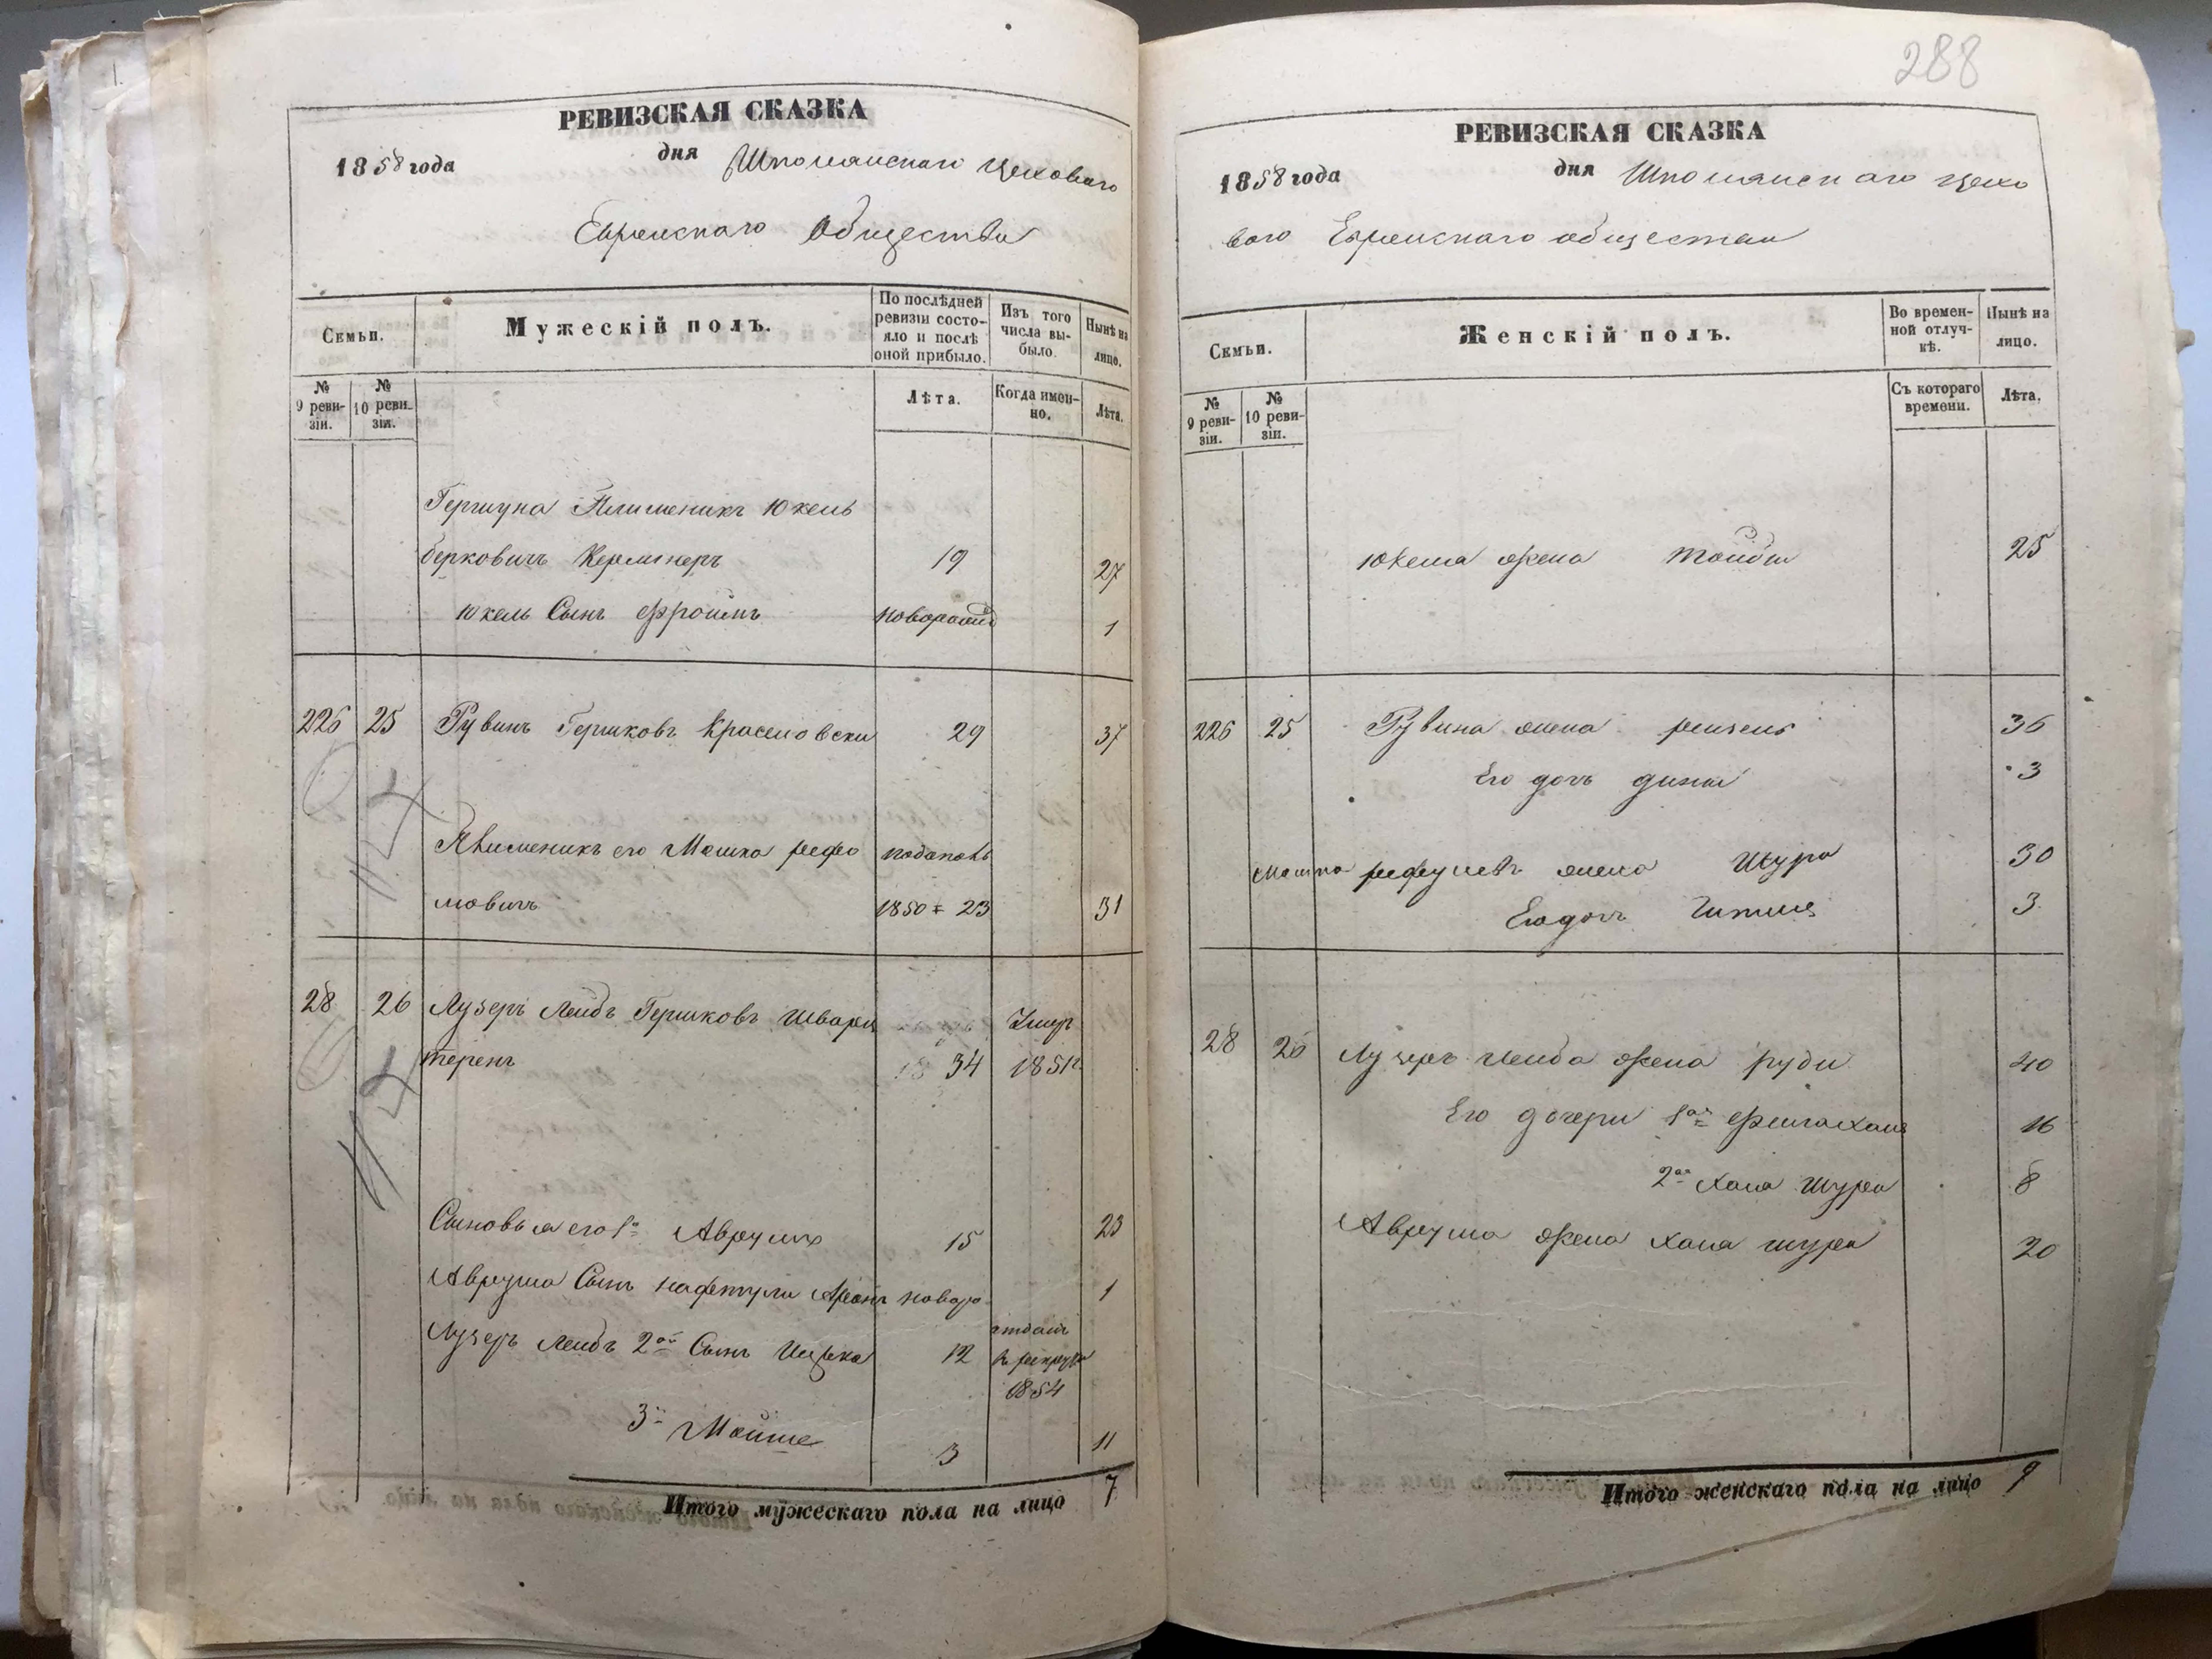 РЕВИЗСКАЯ СКАЗКА
1858 года дня Шполянскаго Цеховаго
Еврейскаго Общества
Семьи.
Мужескій полъ.
По послѣдней ревизіи состо-яло и послѣ оной прибыло.
Изъ того числа вы-было.
Нынѣ на лицо.
№ 9 реви-зіи.
№ 10 реви-зіи.
Лѣта.
Когда имен-но.
Лѣта.
Гершуна Племеникъ Юкель
Берковичъ 19 27
Юкель Сынъ Фроимъ 1
226 25 Рувинъ Гершковъ 29 37
Племеникъ его Мошко
1850 = 23 31
28 26 Лузеръ Лейбъ Гершковъ Шварц Умеръ
теренъ 34 1851
Сыновья его 1й Аврумъ 15 23
Аврума Сынъ Нафтули новоро 1
Лузеръ Лейбъ 2ой Сынъ Ицько 12 отданъ в рекруты 1854
3й Мойше 3 11
Итого мужескаго пола на лицо 7
288
РЕВИЗСКАЯ СКАЗКА
1858 года дня Шполянскаго Цехо
ваго Еврейскаго общества
Семьи.
Женскій полъ.
Во времен-ной отлуч-кѣ.
Нынѣ на лицо.
№ 9 реви-зіи.
№ 10 реви-зіи.
Съ котораго времени.
Лѣта.
Юкеля жена Тойба 25
226 25 Рувина жена 36
Его дочь 3
Мошка жена Шура 30
Его дочь 3
28 26 Лузеръ Лейба жена руди 40
Его дочери 1ая 16
2ая Хая Шура 8
Аврума жена Хая шура 20
Итого женскаго пола на лицо 9